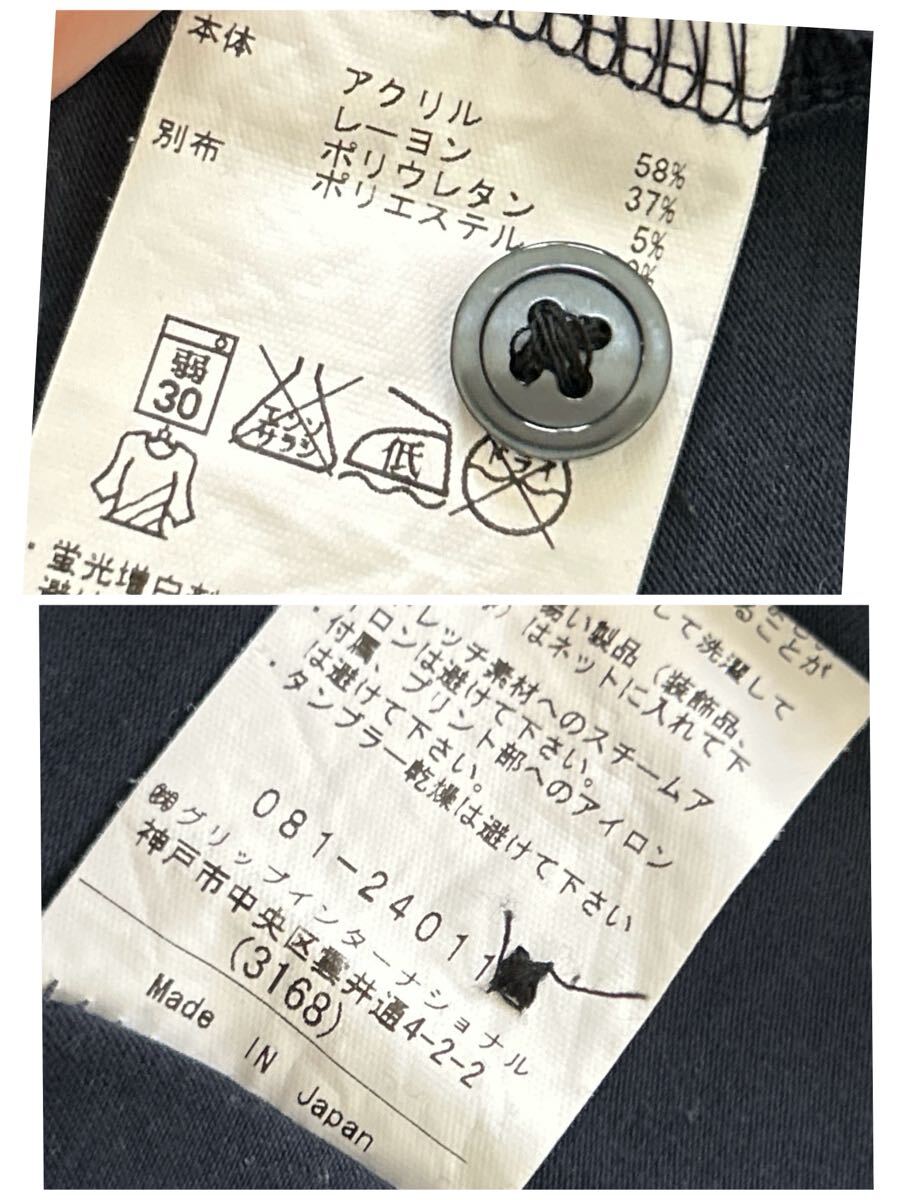 本体
アクリル 58%
レーヨン 37%
ポリウレタン 5%
別布
ポリエステル
弱
30
エンソ
サラシ
低
ドライ
・蛍光増白剤
ることが
易い製品（装飾品、
して洗濯して
はネットに入れて下
レッチ素材へのスチームア
ロンは避けて下さい。
付属、プリント部へのアイロン
は避けて下さい。
・タンブラー乾燥は避けて下さい
081-24011
㈱グリップインターナショナル
神戸市中央区雲井通4-2-2
(3168)
Made IN Japan